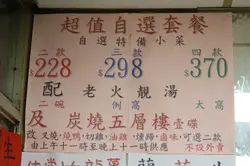 超值自選套餐
自選特備小菜
二款 三款 四款
$228 $298 $370
配 老火靚湯
二碗 例窩 大窩
及炭燒五層樓壹碟
改叉燒,燒鴨,切雞,油雞,燻蹄,鹵味,可選二款
由上午十一時至晚上十一時供應 不設外賣